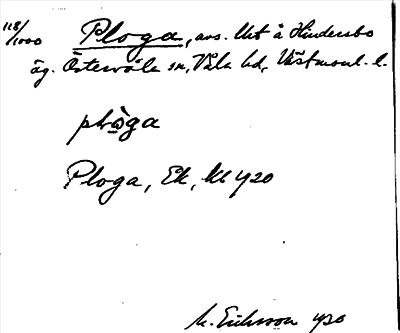 118/1000 Ploga, avs. Utt å Hindersbo
äg. Östervåla sn, Våla hd, Västmanl. l.
plɷ̀ga
Ploga, Ek, Kb 1920
M. Eriksson 1920